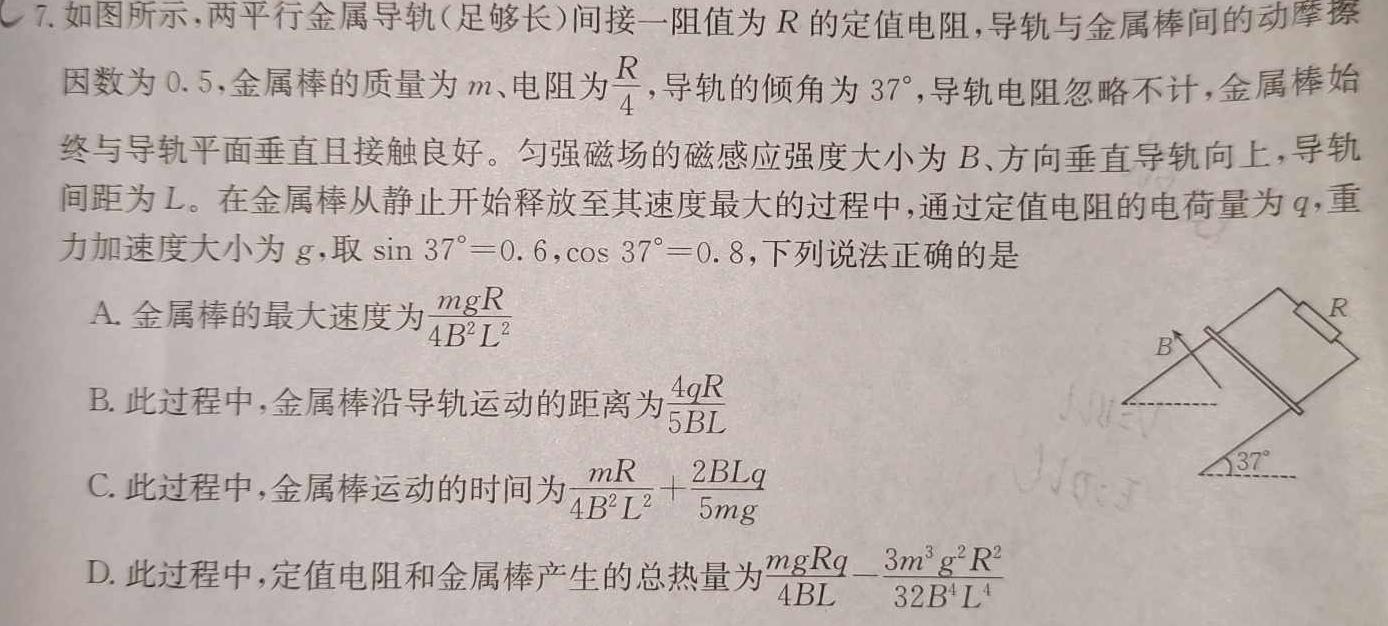 7. 如图所示,两平行金属导轨(足够长)间接一阻值为 R 的定值电阻,导轨与金属棒间的动摩擦
因数为 0.5,金属棒的质量为 m、电阻为 R/4,导轨的倾角为 37°,导轨电阻忽略不计,金属棒始
终与导轨平面垂直且接触良好。匀强磁场的磁感应强度大小为 B、方向垂直导轨向上,导轨
间距为 L。在金属棒从静止开始释放至其速度最大的过程中,通过定值电阻的电荷量为 q,重
力加速度大小为 g,取 sin 37°=0.6,cos 37°=0.8,下列说法正确的是
A. 金属棒的最大速度为 mgR/4B²L²
B. 此过程中,金属棒沿导轨运动的距离为 4qR/5BL
C. 此过程中,金属棒运动的时间为 mR/4B²L² + 2BLq/5mg
D. 此过程中,定值电阻和金属棒产生的总热量为 mgRq/4BL − 3m³g²R²/32B⁴L⁴
R
B
37°